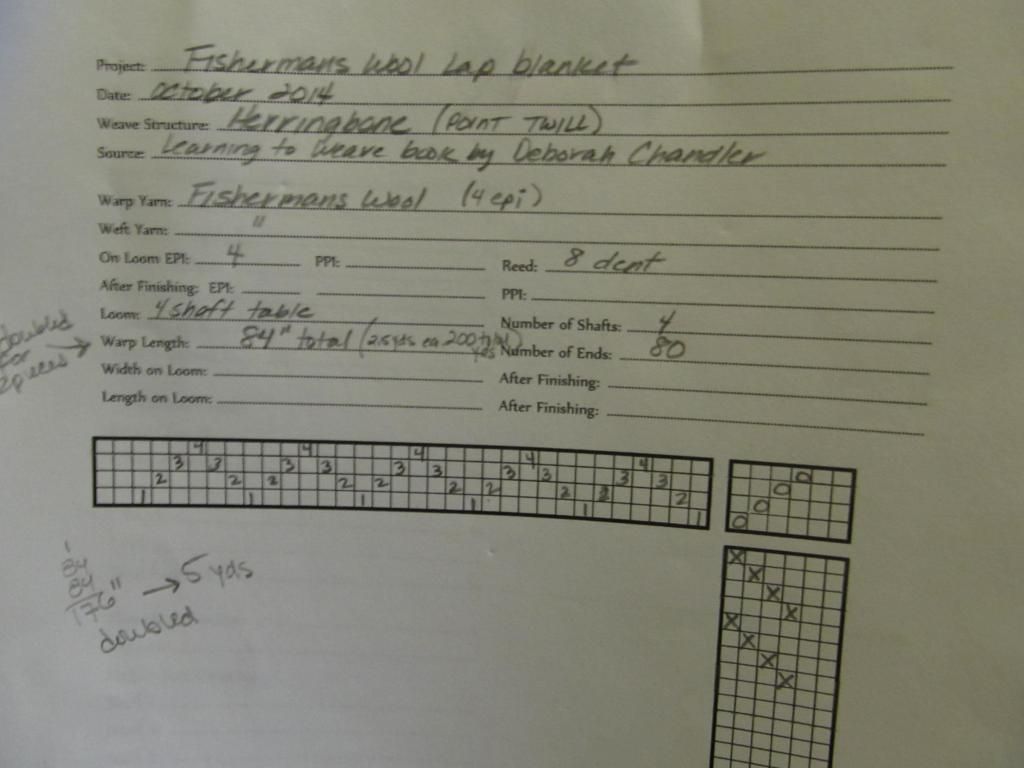 Project: Fishermans Wool Lap blanket
Date: October 2014
Weave Structure: Herringbone (POINT TWILL)
Source: Learning to Weave book by Deborah Chandler
Warp Yarn: Fishermans Wool (4 epi)
Weft Yarn: "
On Loom EPI: 4 PPI: Reed: 8 dent
After Finishing: EPI: PPI:
Loom: 4 shaft table Number of Shafts: 4
doubled for 2 pieces → Warp Length: 84" total (2.5 yds ea 200 total) yds Number of Ends: 80
Width on Loom: After Finishing:
Length on Loom: After Finishing:
4 4 4 4 4
3 3 3 3 3 3 3 3 3 3 0
2 2 2 2 2 2 2 2 2 2 0
1 1 1 1 1 1 0
0
X
X
X
X
X
X
X
X
1
84
84
176" → 5 yds
doubled